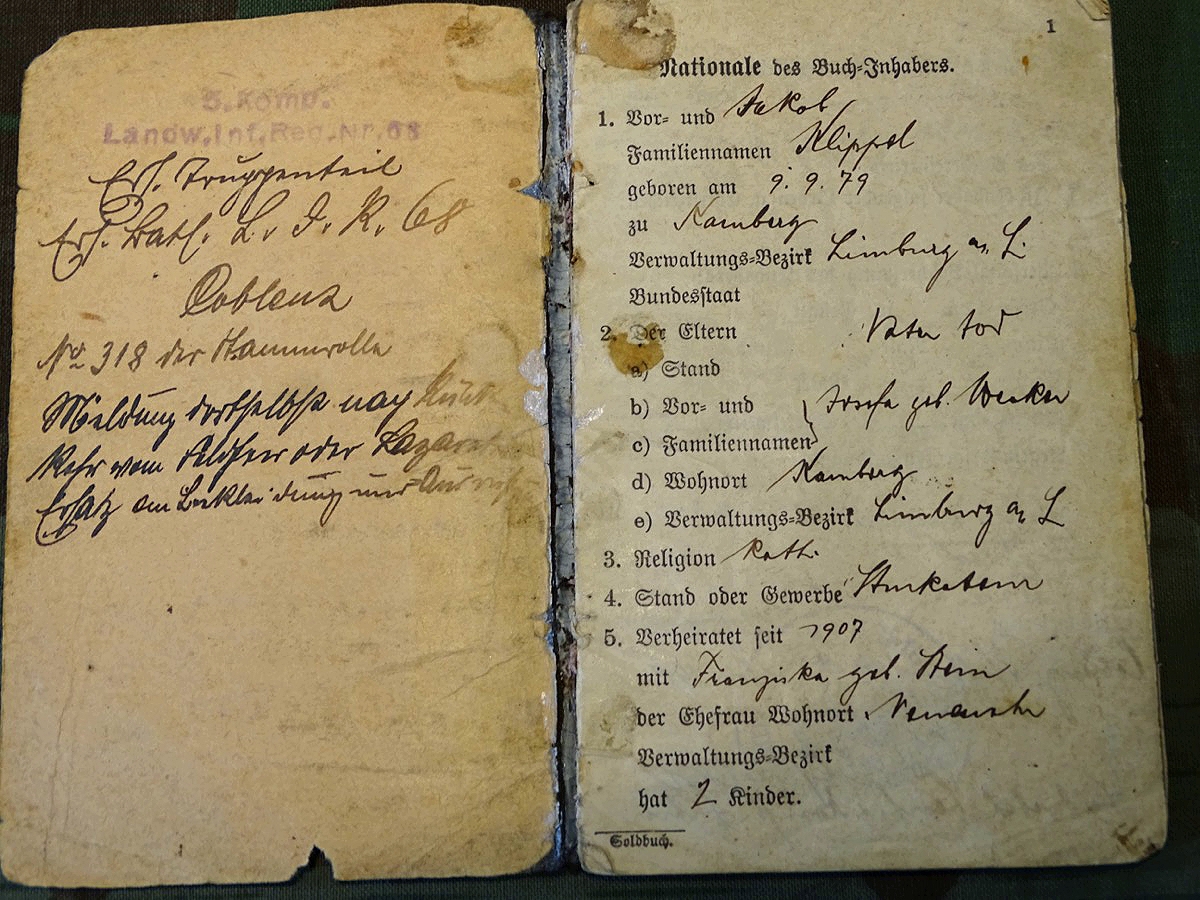 5. Komp.
Landw. Inf. Reg. Nr. 68
Ers. Truppenteil
Ers. Batl. L. I. R. 68
Coblenz
No 318 der Stammrolle
Meldung dortselbst nach Rück-
kehr vom Feldheer oder Lazarett
Ersatz an Bekleidung und
1
Nationale des Buch-Inhabers.
1. Vor- und Jakob
Familiennamen Klippel
geboren am 9. 9. 79
zu Kamberg
Verwaltungs-Bezirk Limburg a. L.
Bundesſtaat
2. Der Eltern Vater tod
a) Stand
b) Vor- und Josefa geb.
c) Familiennamen
d) Wohnort Kamberg
e) Verwaltungs-Bezirk Limburg a. L
3. Religion kath.
4. Stand oder Gewerbe
5. Verheiratet ſeit 1907
mit Franziska geb. Stein
der Ehefrau Wohnort
Verwaltungs-Bezirk
hat 2 Kinder.
Soldbuch.